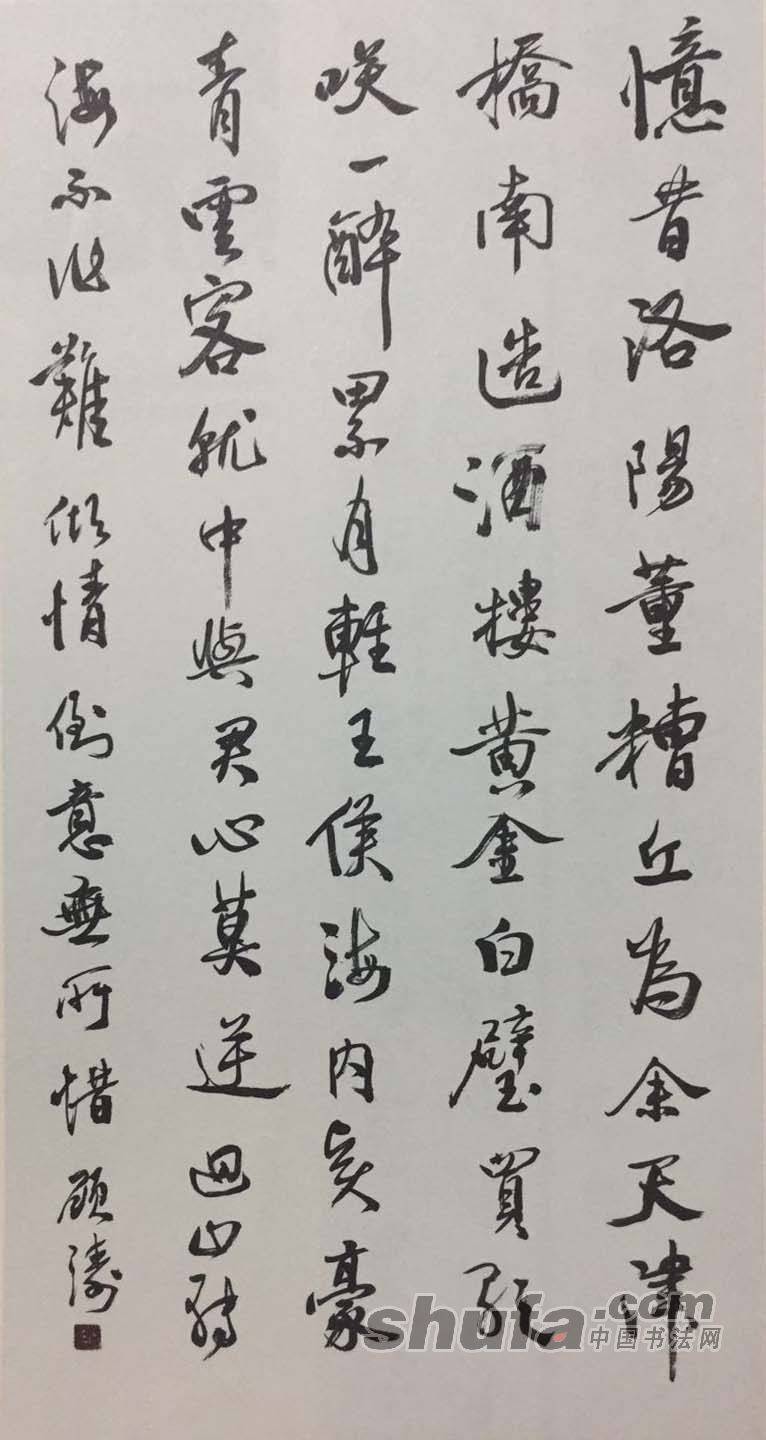 憶昔洛陽董糟丘為余天津
橋南造酒樓黄金白璧買歌
咲一醉累月輕王侯海内賢豪
青雲客就中與君心莫逆迴山轉
海不作難傾情倒意無所惜 顧濤
shufa.com
中国书法网